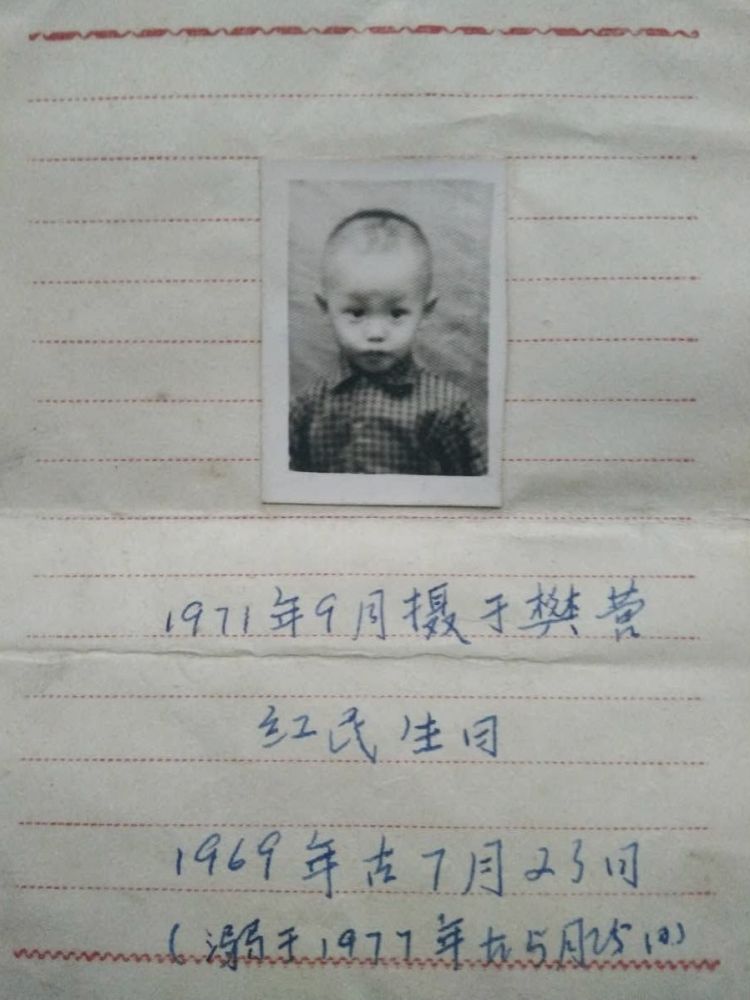 1971年9月摄于樊营
红民生日
1969年古7月23日
(溺于1977年古5月25日)